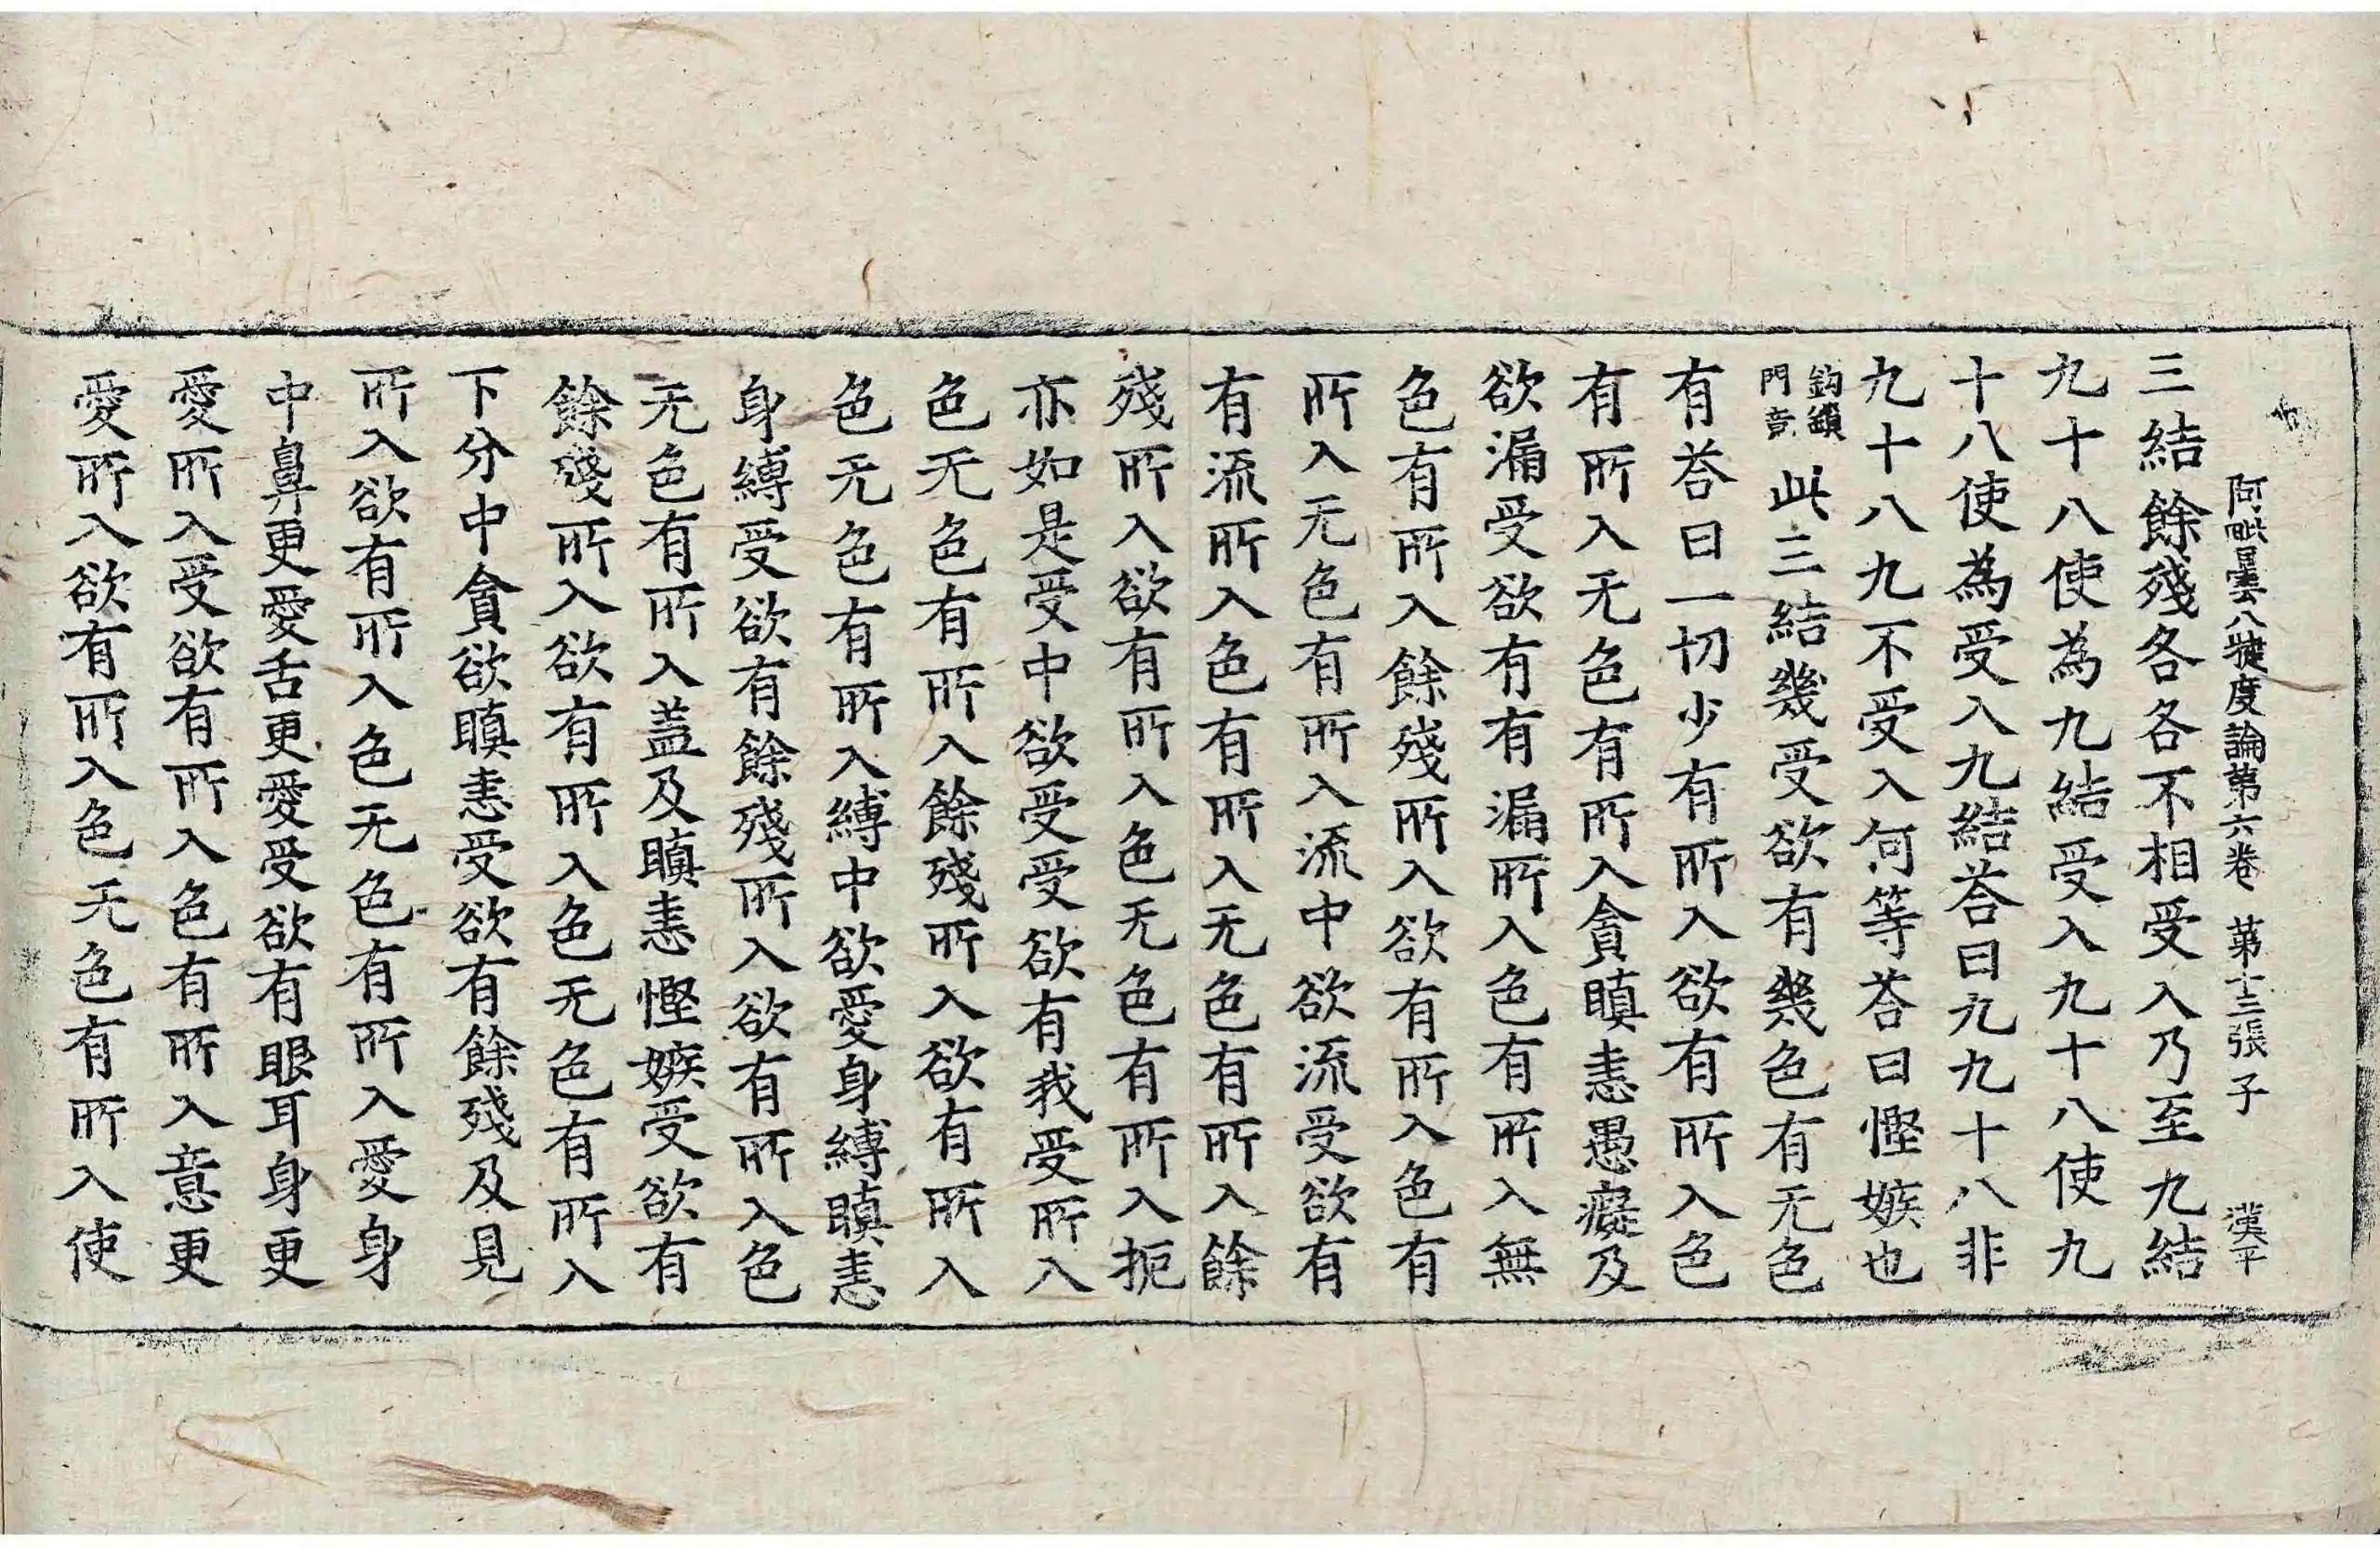 阿毗曇八犍度論第六卷 第十三張 子 漢平
三結餘殘各各不相受入乃至九結
九十八使為九結受入九十八使九
十八使為受入九結荅曰九九十八非
九十八九不受入何等荅曰慳嫉也
鈎鎖
門竟
此三結幾受欲有幾色有无色
有荅曰一切少有所入欲有所入色
有所入无色有所入貪瞋恚愚癡及
欲漏受欲有有漏所入色有所入無
色有所入餘殘所入欲有所入色有
所入无色有所入流中欲流受欲有
有流所入色有所入无色有所入餘
殘所入欲有所入色无色有所入扼
亦如是受中欲受受欲有我受所入
色无色有所入餘殘所入欲有所入
色无色有所入縛中欲愛身縛瞋恚
身縛受欲有餘殘所入欲有所入色
无色有所入盖及瞋恚慳嫉受欲有
餘殘所入欲有所入色无色有所入
下分中貪欲瞋恚受欲有餘殘及見
所入欲有所入色无色有所入愛身
中鼻更愛舌更愛受欲有眼耳身更
愛所入受欲有所入色有所入意更
愛所入欲有所入色无色有所入使